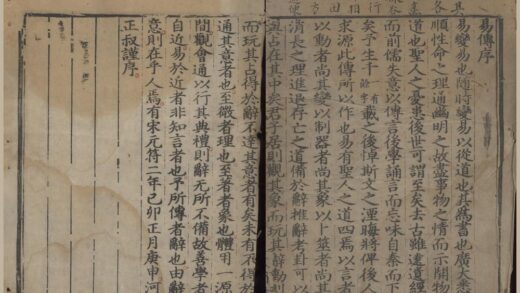 易傳序
易變易也隨時變易以從道也其為書也廣大悉
順性命之理通幽明之故盡事物之情而示開物
道也聖人之憂患後世可謂至矣去古雖遠遺經
而前儒失意以傳言後學誦言而忘味自秦而下
矣予生千有餘字載之後悼斯文之湮晦將俾後人
求源此傳所以作也易有聖人之道四焉以言者
以動者尚其變以制器者尚其象以卜筮者尚其
消長之理進退存亡之道備於辭推辭考卦可以
與占在其中矣君子居則觀其象而玩其辭動則
而玩其占得於辭不達其意者有矣未有不得於
通其意者也至微者理也至著者象也體用一源
間觀會通以行其典禮則辭無所不備故善學者
自近易於近者非知言者也予所傳者辭也由辭
意則在乎人焉有宋元符二年己卯正月庚申河
正叔謹序